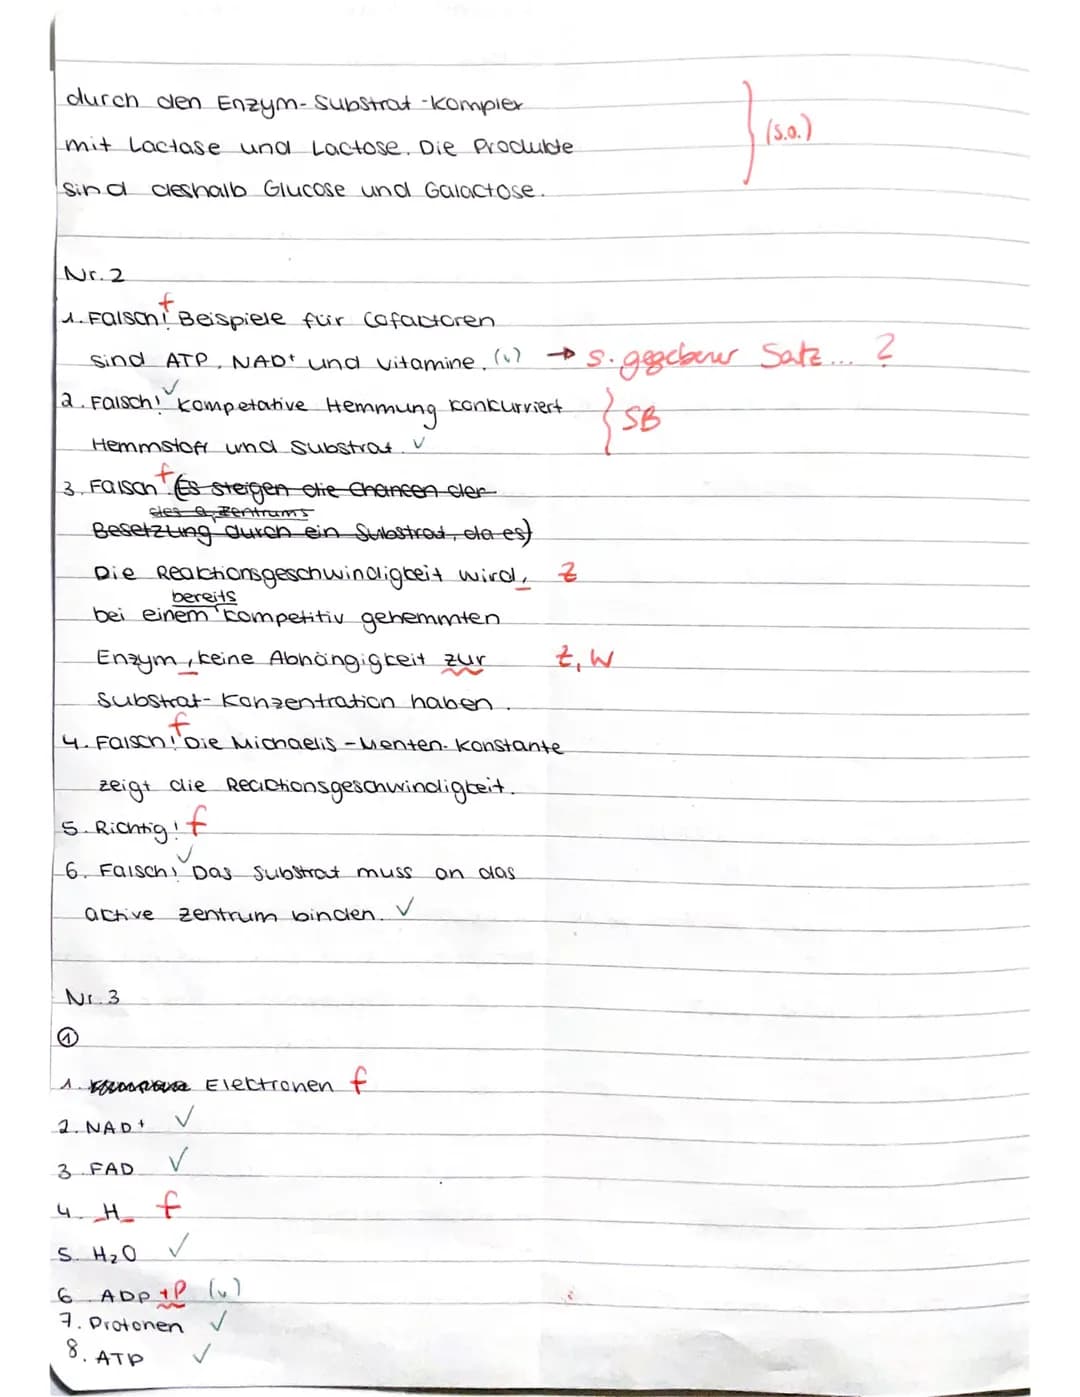 durch den Enzym-Substrat-Komplex
mit Lactase und Lactose. Die Produkte } (s.o.)
sind deshalb Glucose und Galactose.
Nr. 2
1. Falsch! f Beispiele für Cofactoren
sind ATP, NAD⁺ und Vitamine. (✓) → s. gegebener Satz... ?
2. Falsch! ✓ Kompetative Hemmung konkurriert } SB
Hemmstoff und Substrat. ✓
3. Falsch f (Es steigen die Chancen der
des a. Zentrums
Besetzung durch ein Substrat, da es)
Die Reaktionsgeschwindigkeit wird, Z
bereits
bei einem kompetitiv gehemmten
Enzym, keine Abhängigkeit zur Z, W
Substrat-Konzentration haben.
4. Falsch! f Die Michaelis-Menten-Konstante
zeigt die Reaktionsgeschwindigkeit.
5. Richtig! f
6. Falsch! ✓ Das Substrat muss an das
active Zentrum binden. ✓
Nr. 3
①
1. Elektronen f
2. NAD⁺ ✓
3. FAD ✓
4. H f
5. H₂O ✓
6. ADP +P (✓)
7. Protonen ✓
8. ATP ✓